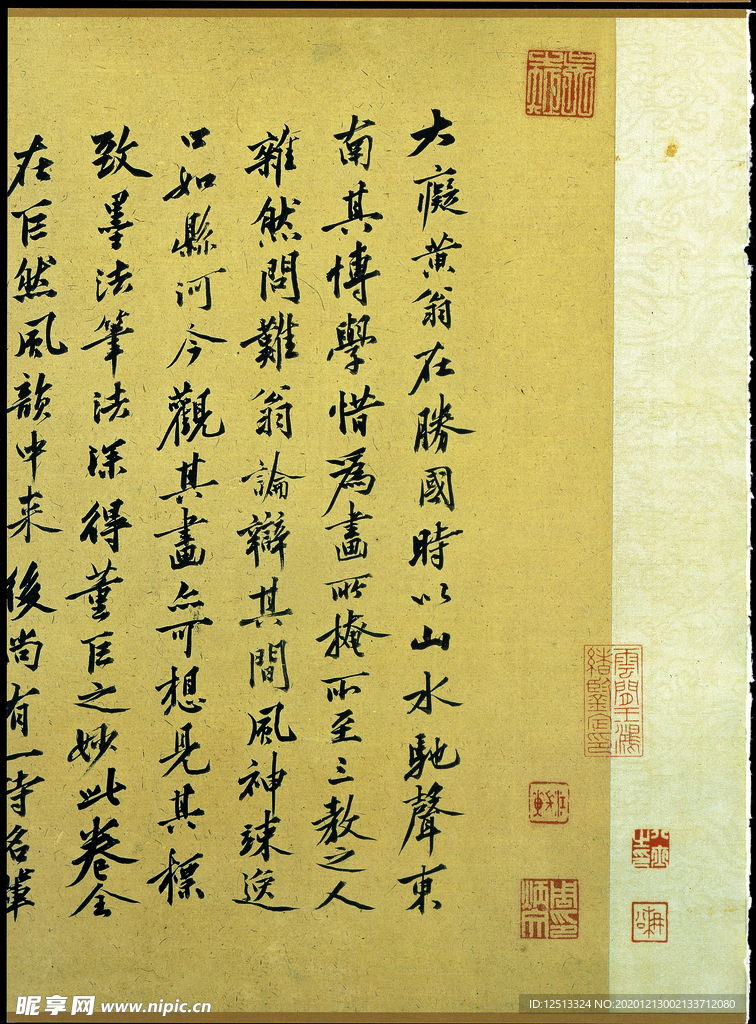 大癡黄翁在勝國時以山水馳聲東
南其博學惜爲畫所掩所至三教之人
雜然問難翁論辯其間風神竦逸
口如縣河今觀其畫亦可想見其標
致墨法筆法深得董巨之妙此卷全
在巨然風韻中来後尚有一時名輩
雲間王鴻緒鑒定印
昵享网 www.nipic.cn
ID:12513324 NO:20201213002133712080